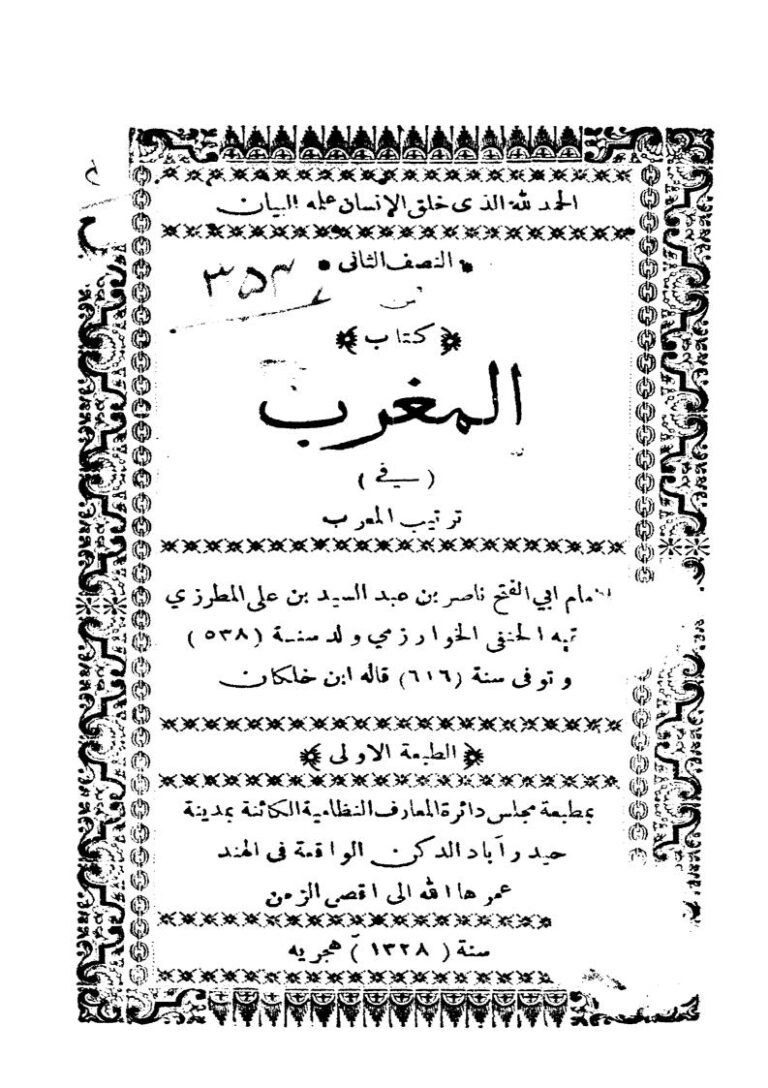 الحمد لله الذى خلق الإنسان علمه البيان
النصف الثانى
٣٥٣
من
كتاب
المغرب
( في )
ترتيب المعرب
ابي الفتح ناصر بن عبد السيد بن على المطرزي
الحنفى الخوارزمي ولد سنة (٥٣٨)
وتوفى سنة (٦١٦) قاله ابن خلكان
الطبعة الاولى
بمطبعة مجلس دائرة المعارف النظامية الكائنة بمدينة
حيدرآباد الدكن الواقعة فى الهند
عمرها الله الى اقصى الزمن
سنة ( ١٣٢٨ ) هجريه